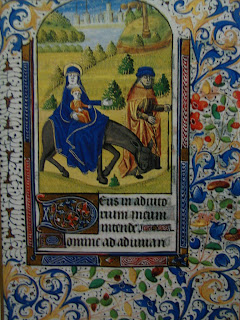 DEus in adiuto
rium meum
intende
Domine ad adiuuan